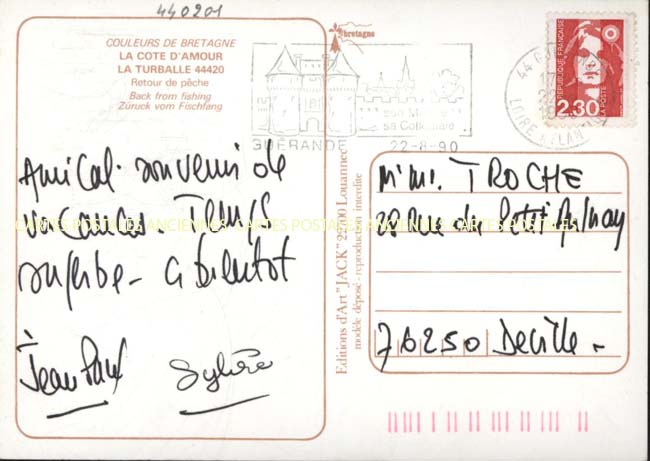 440201
COULEURS DE BRETAGNE
LA COTE D'AMOUR
LA TURBALLE 44420
Retour de pêche
Back from fishing
Züruck vom Fischfang
bretagne
44
LOIRE ATLAN
GUÉRANDE
22-8-90
RÉPUBLIQUE FRANÇAISE
LA POSTE
2,30
Amical souvenir de
vacances. Temps
superbe - A bientôt
Jean Paul
Sylvie
Editions d'Art "JACK" 22600 Louannec
modèle déposé - reproduction interdite
M. Mme. TROCHE
28 Rue du Petit Aulnay
76250 Deville -
CARTES POSTALES ANCIENNES CARTES POSTALES ANCIENNES CARTES POSTALES